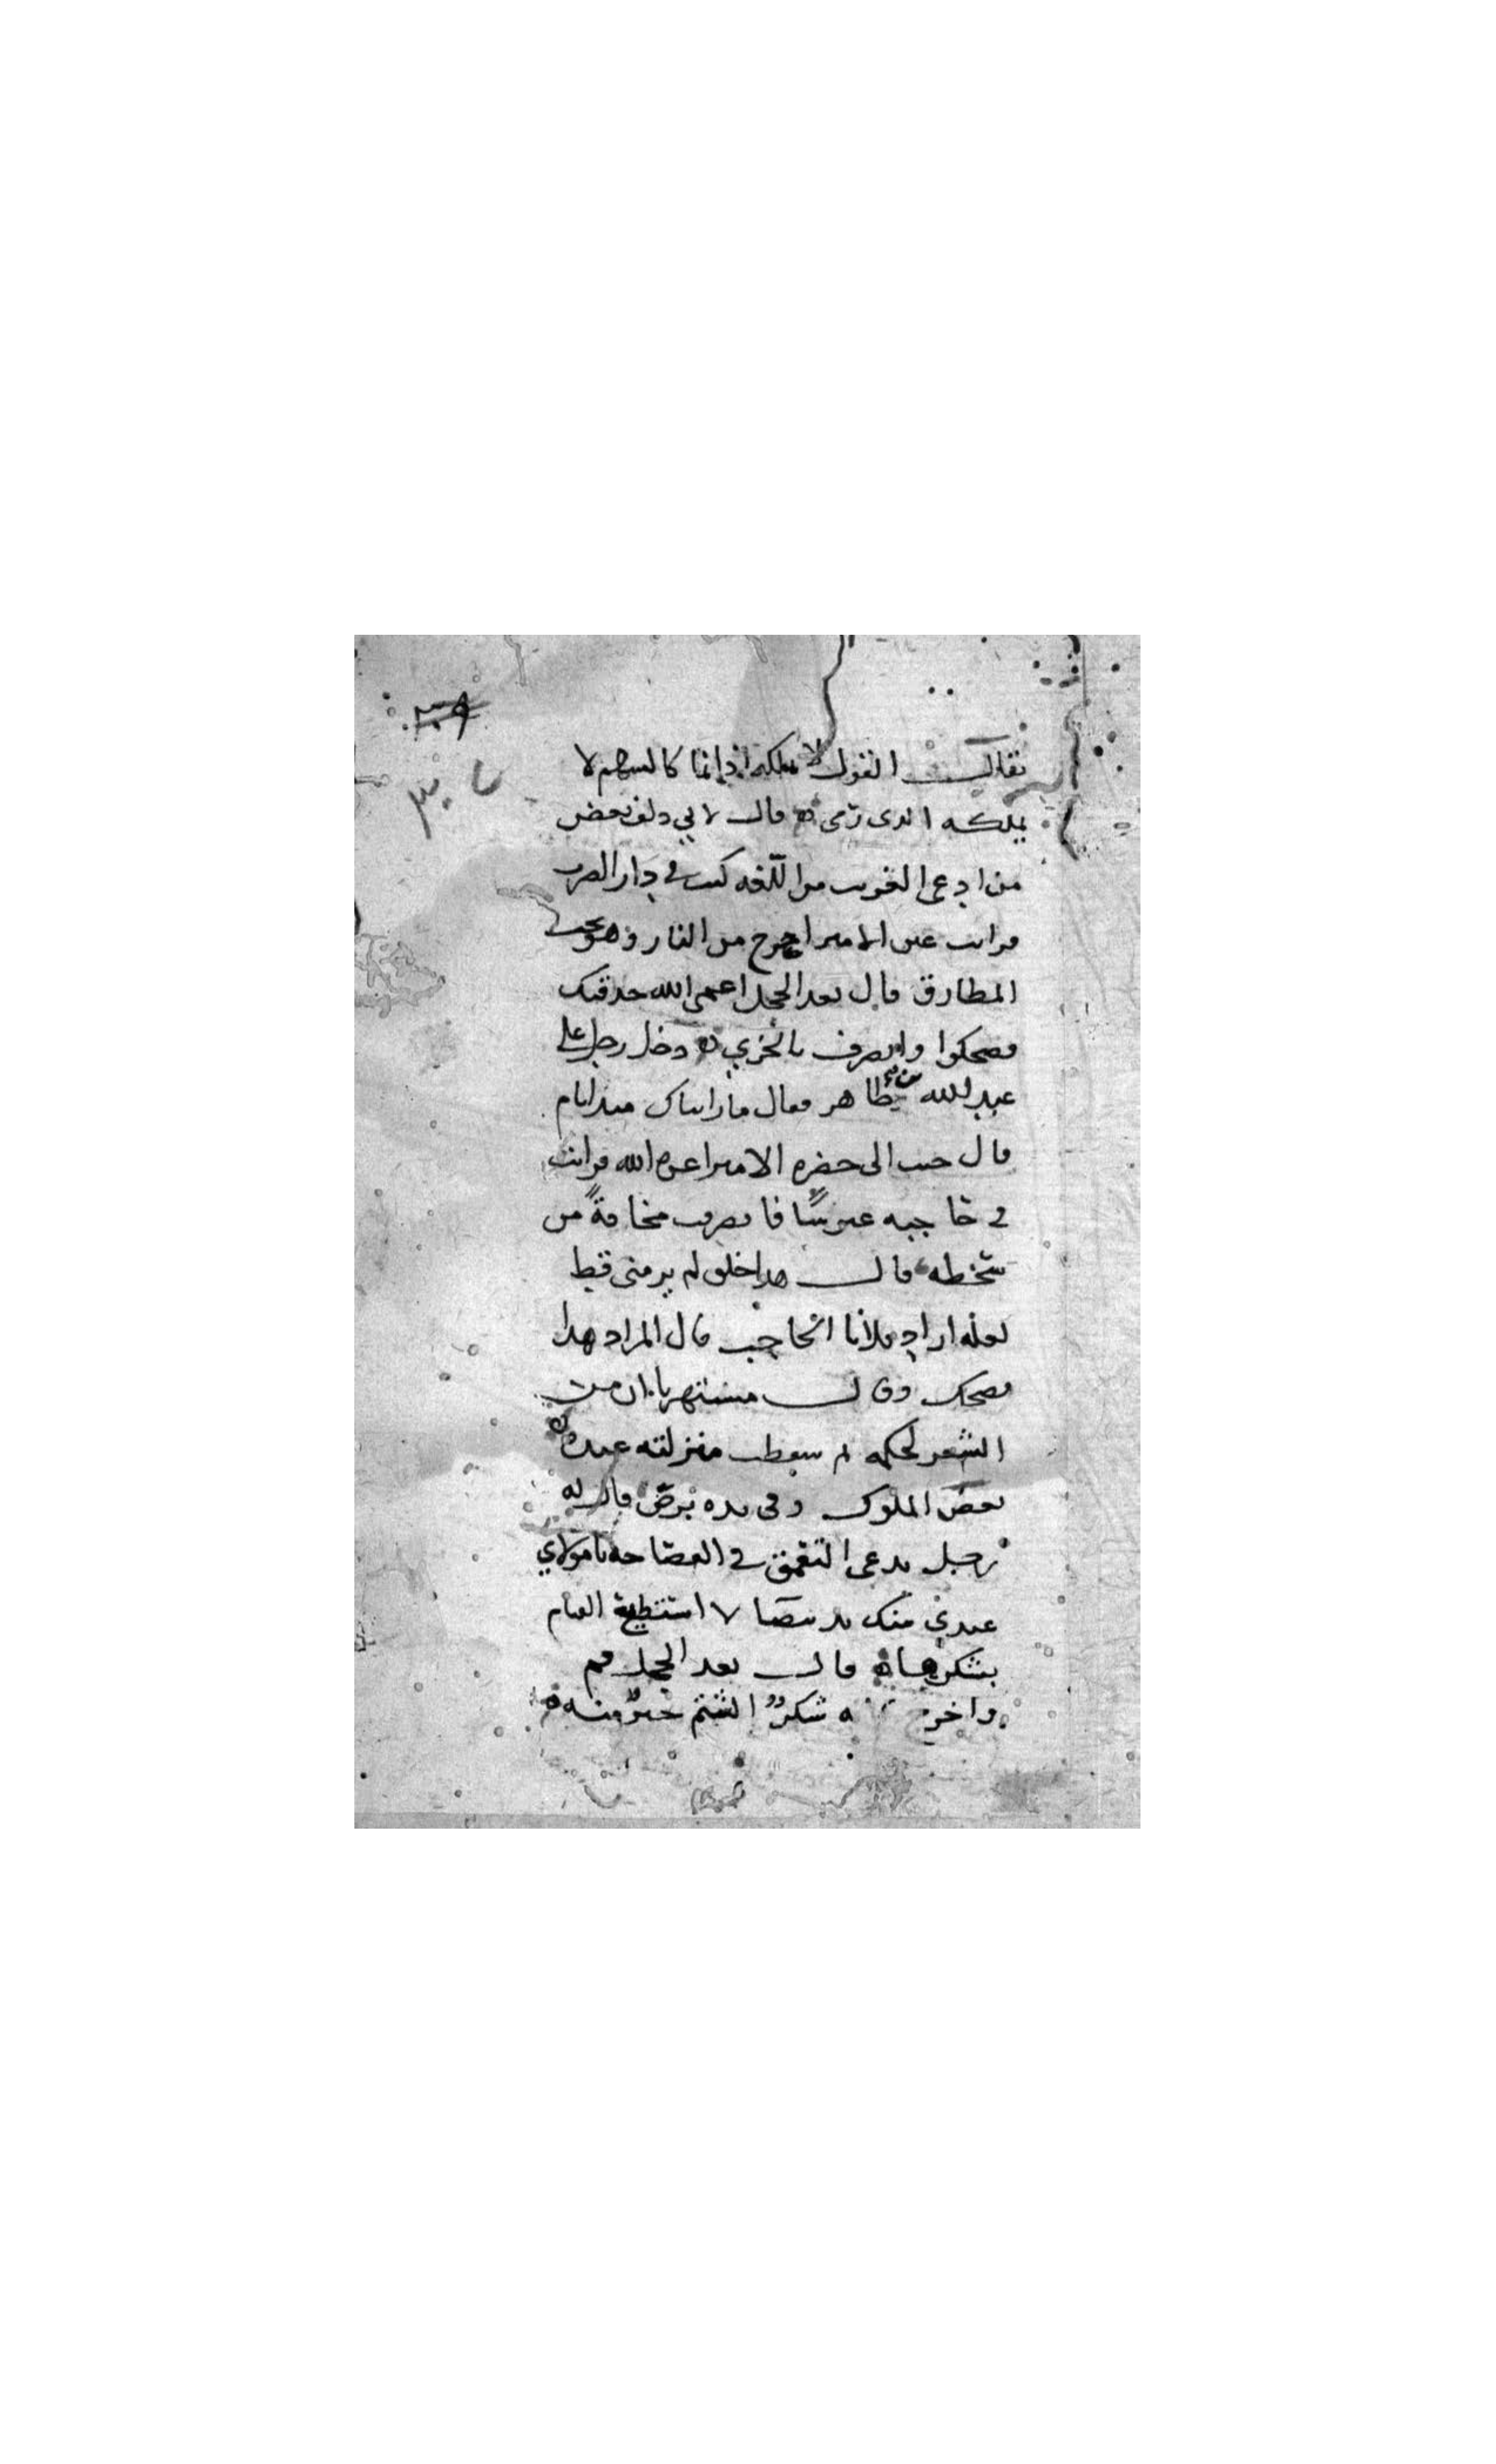 ٣٩
٣٠
يقال القول لا يملكه اذا نما كالسهم لا
يملكه الذى رمى قال لابي دلف بعض
من ادعى القرب من اللغه كنت في دار الضرب
فرايت عين الامير اخرج من النار وهو تحت
المطارق قال بعد الخجل اعمى الله حدقتك
فضحكوا وانصرف بالخزي دخل رجل على
عبد الله بن طاهر فقال ما رايناك منذ ايام
قال جيت الى حضره الامير اعزه الله فرايت
في حاجبه عبوسًا فانصرفت مخافةً من
سخطه قال هذا خلق لم ير منى قط
لعله اراد فلانا الحاجب قال المراد هذا
فضحك وقال مستهزيا ان من
الشعر لحكمه ثم سقطت منزلته عنده
بعض الملوك وفى يده برص قال له
رجل يدعى التعمق في الفصاحه يا مولاي
عندي منك يد بيضا لا استطيع القيام
بشكرها قال بعد الخجل قم
واخرج شكرٌ الشتم خيرٌ منه